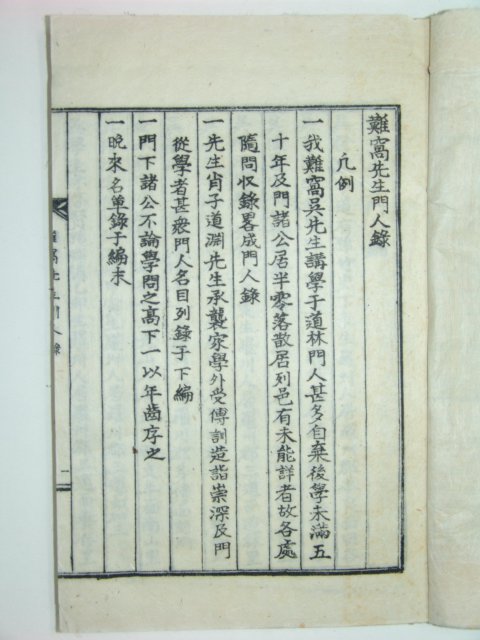 難窩先生門人錄
凡例
一我難窩吳先生講學于道林門人甚多自棄後學未滿五
十年及門諸公居半零落散居列邑有未能詳者故各處
隨問収錄畧成門人錄
一先生肖子道淵先生承襲家學外受傳訓造詣崇深及門
從學者甚衆門人名目列錄于下編
一門下諸公不論學問之高下一以年齒序之
一晩來名單錄于編末
難窩先生門人錄
一